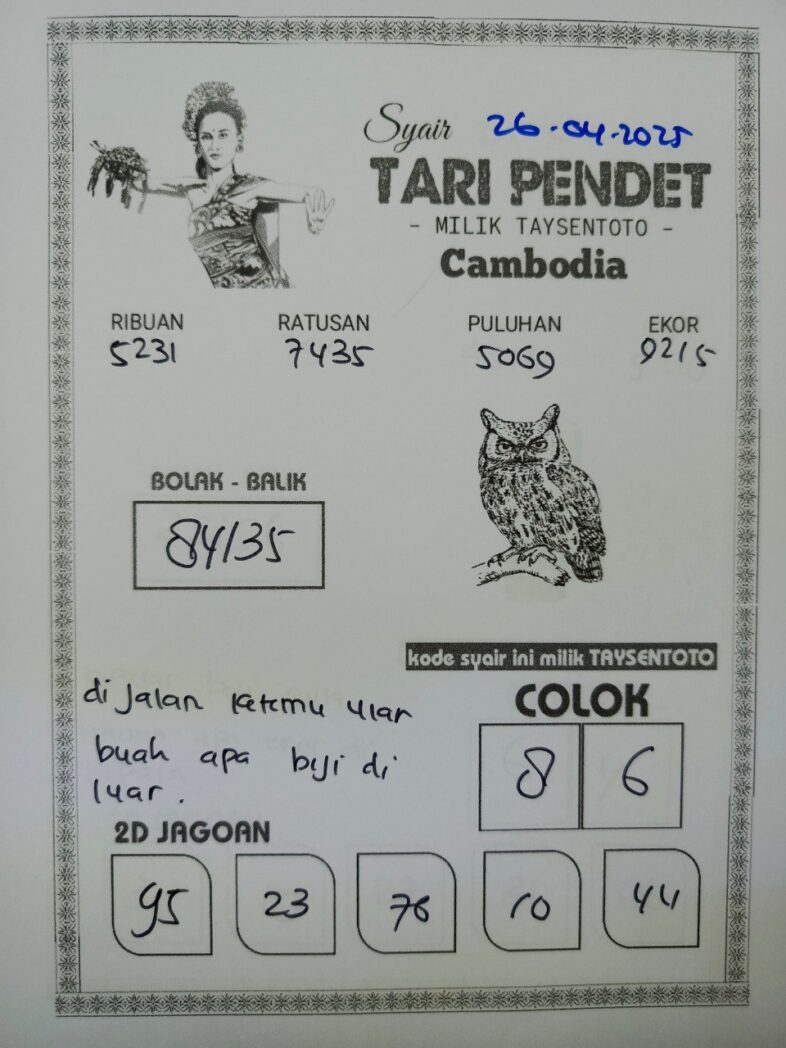 Syair 26-04-2025
TARI PENDET
- MILIK TAYSENTOTO -
Cambodia
RIBUAN RATUSAN PULUHAN EKOR
5231 7435 5069 9215
BOLAK - BALIK
84135
kode syair ini milik TAYSENTOTO
COLOK
8 6
di Jalan ketemu ular
buah apa biji di
luar.
2D JAGOAN
95 23 76 10 44